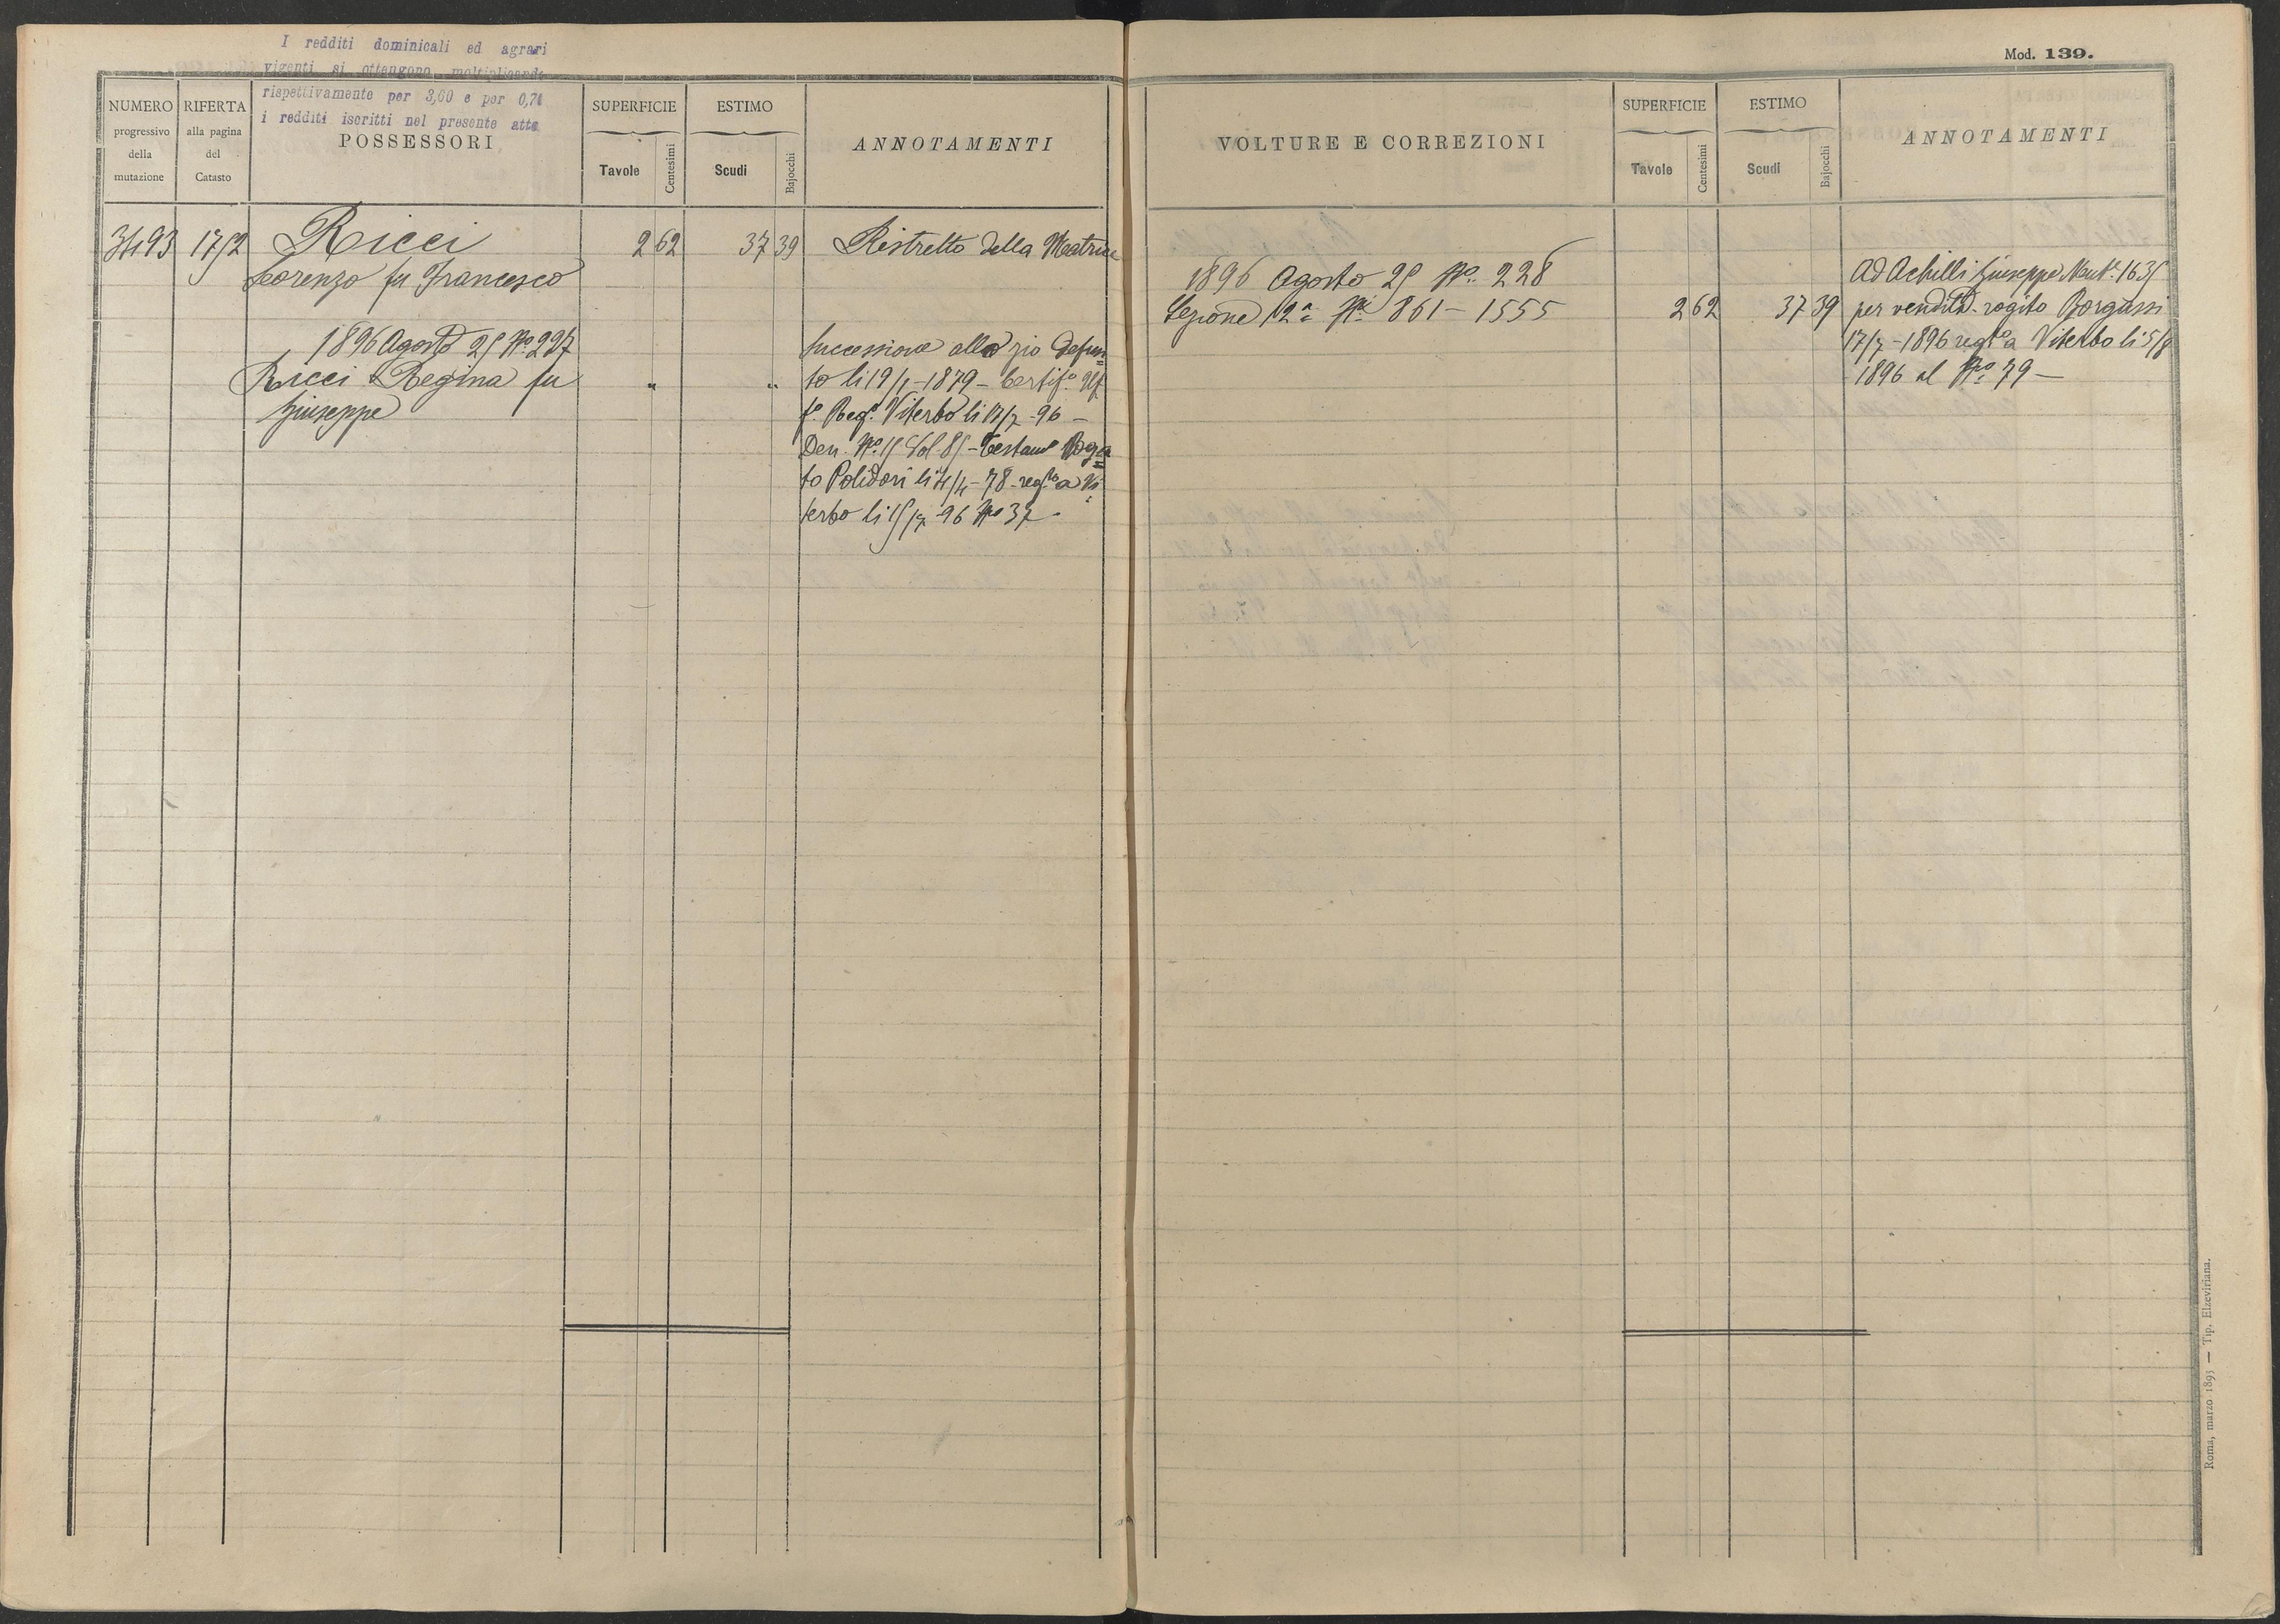 I redditi dominicali ed agrari
vigenti si ottengono moltiplicando
rispettivamente per 3,60 e per 0,70
i redditi iscritti nel presente atto
Mod. 139.
NUMERO
progressivo
della
mutazione
RIFERTA
alla pagina
del
Catasto
POSSESSORI
SUPERFICIE
Tavole
Centesimi
ESTIMO
Scudi
Bajocchi
ANNOTAMENTI
3493 1752 Ricci 2 62 37 39 Ristretto della Matrice
Lorenzo fu Francesco
1896 Agosto 25 No 227 Successione allo zio defun
Ricci Regina fu " " to li 19/1-1879 - Certifo.
Giuseppe fo. Rego. Viterbo li 17/7-96 -
Den. No. 15 Vol. 85 - Testamo Roga
to Polidori li 4/4-78 - regto a Vi
terbo li 15/7-96 No 37 -
VOLTURE E CORREZIONI
SUPERFICIE
Tavole
Centesimi
ESTIMO
Scudi
Bajocchi
ANNOTAMENTI
1896 Agosto 25 No. 228 Ad Achilli Giuseppe 1635
Sezione 2a Ni 861 - 1555 2 62 37 39 per vendita rogito Borgassi
17/7-1896 regto a Viterbo li 5/8
1896 al No 79 -
Roma, marzo 1895 — Tip. Elzeviriana.